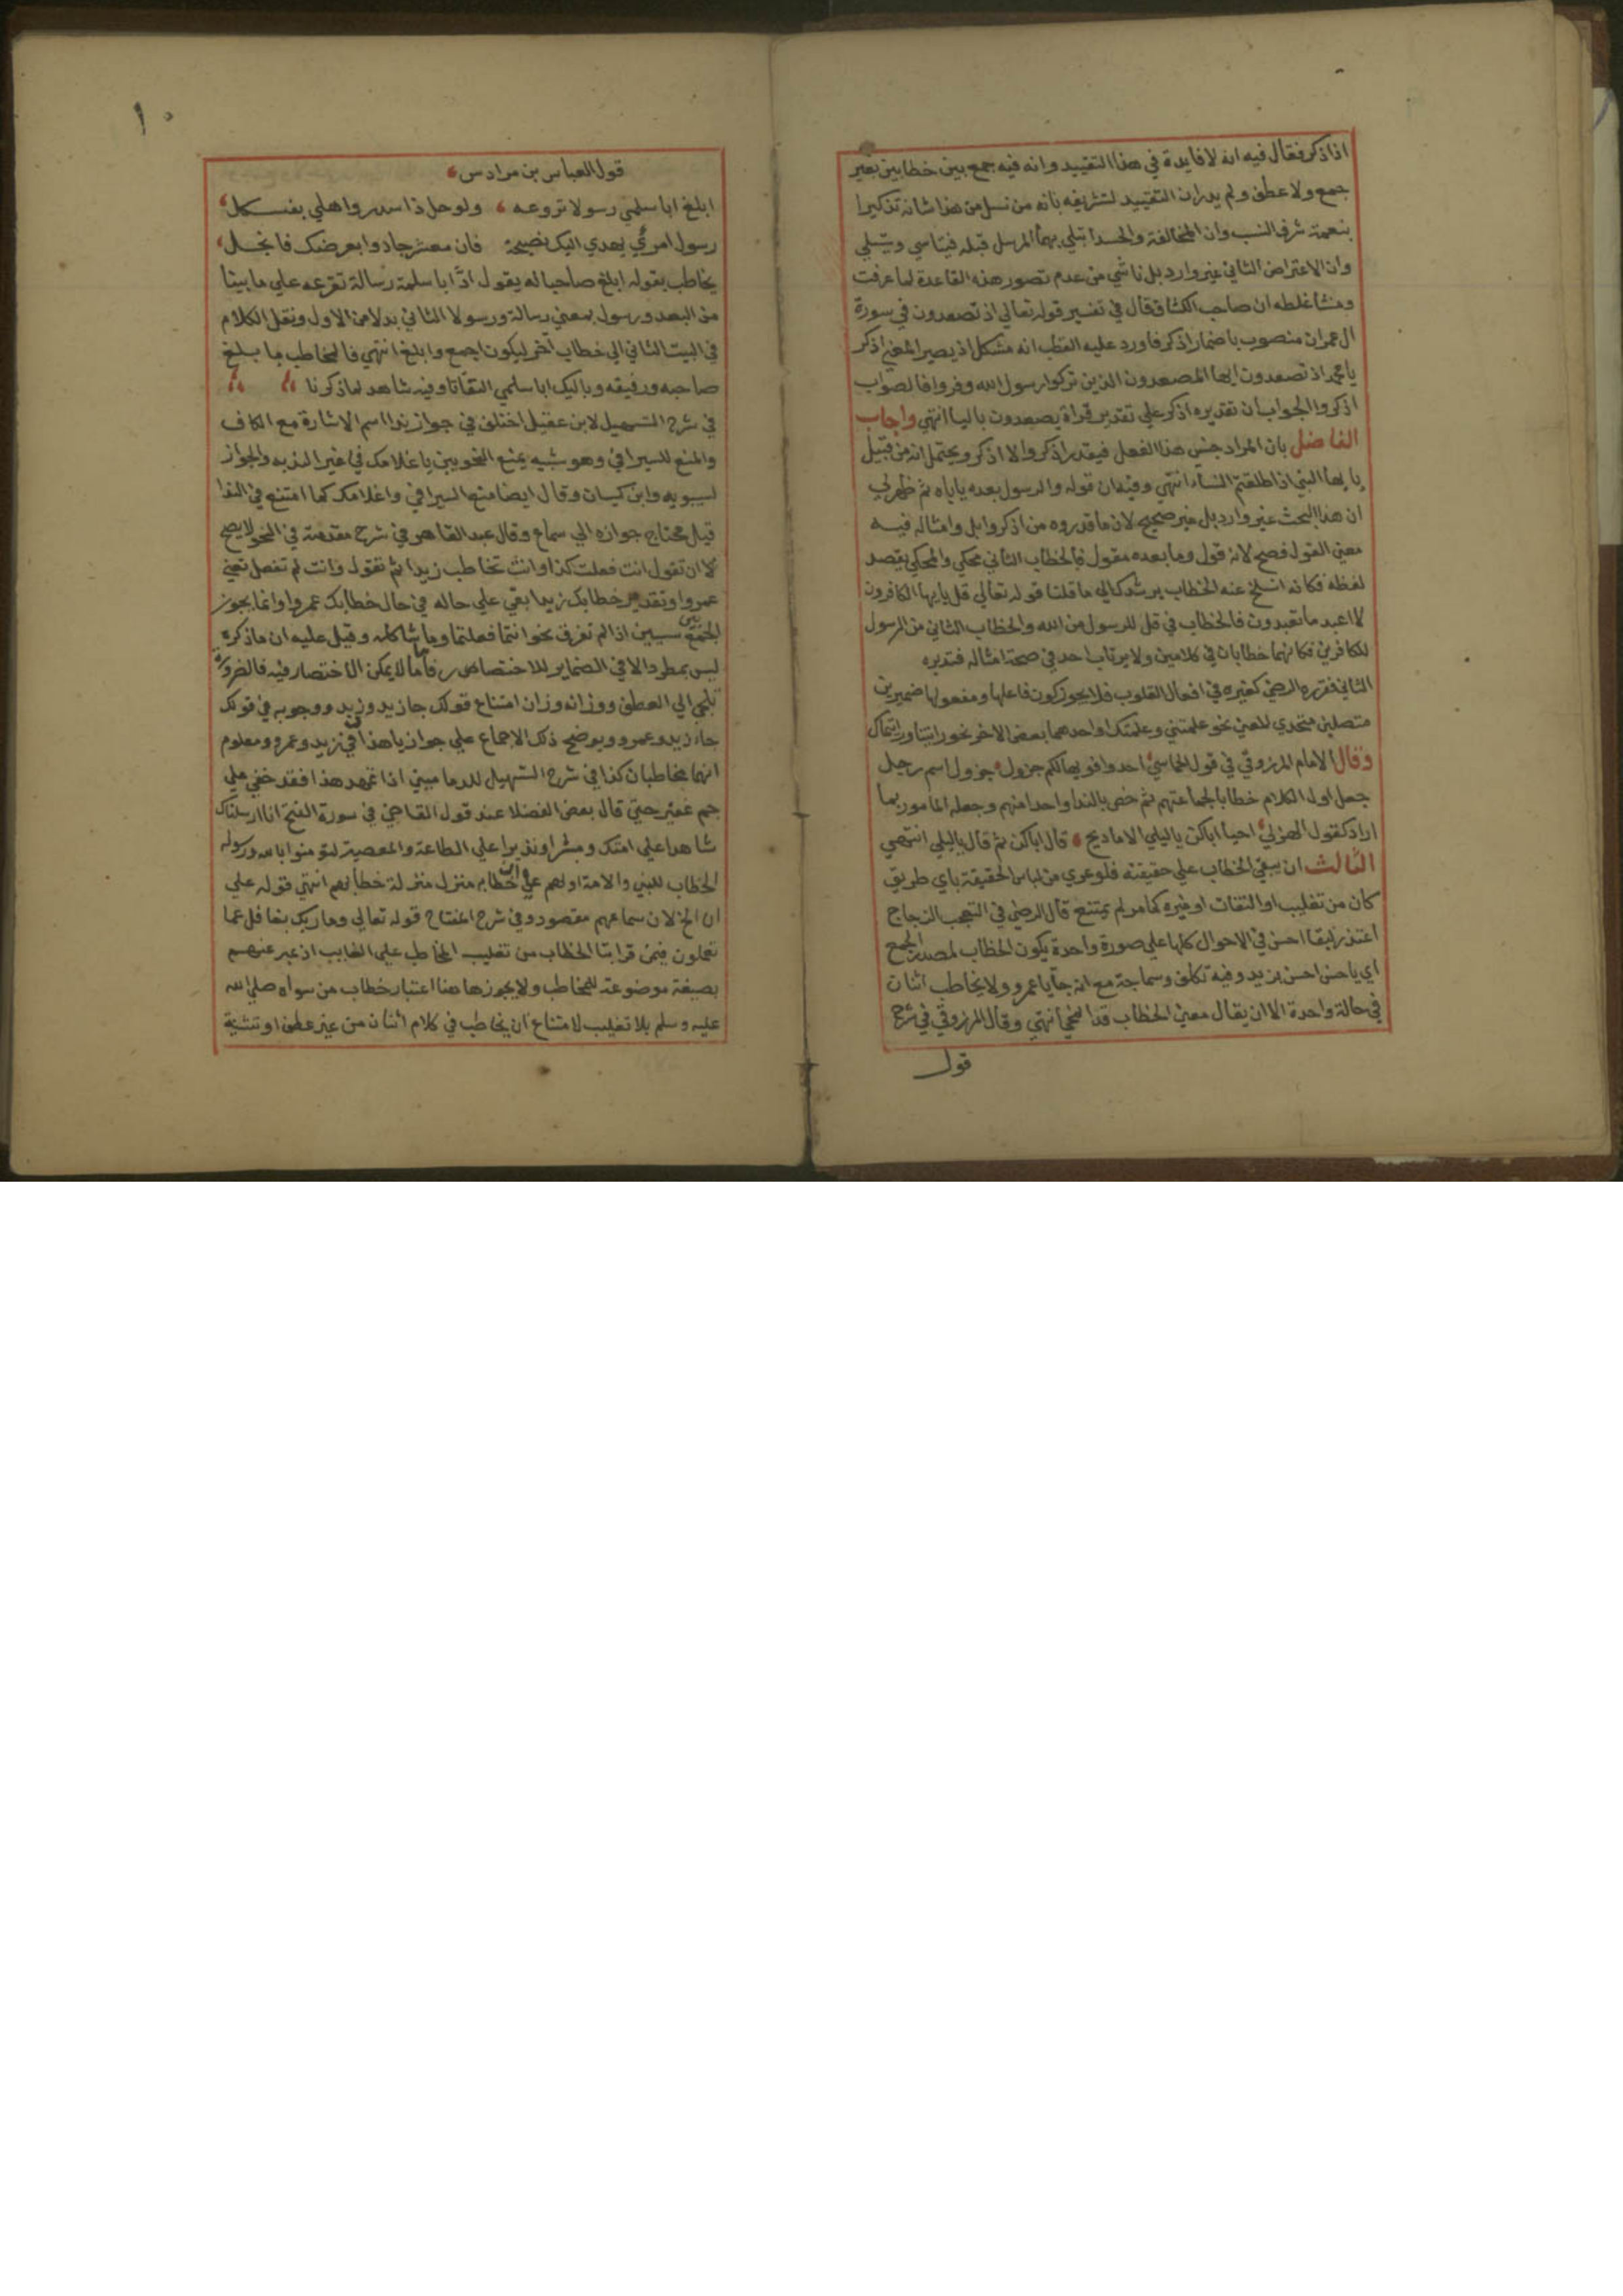 اذاذكر فقال فيه انه لا فايدة في هذا التقييد وانه فيه جمع بين خطابين بغير
جمع ولا عطف ولم يدر ان التقييد لتشريفه بانه من نسل من هذا شانه تذكيرا
بنعمة شرف النسب وان المخالفة والحسد ابتلي بهما المرسل قبله فيتاسي ويتسلي
وان الاعتراض الثاني غير وارد بل ناشي من عدم تصور هذه القاعدة لما عرفت
ومنشا غلطه ان صاحب الكشاف قال في تفسير قوله تعالي اذ تصعدون في سورة
ال عمران منصوب باضمار اذكر فاورد عليه القطب انه مشكل اذ يصير المعني اذكر
يا محمد اذ تصعدون ايها المصعدون الذين تركوا رسول الله وفروا فالصواب
اذكروا والجواب ان تقديره اذكر علي تقدير قراة يصعدون باليا انتهي واجاب
الفاضل بان المراد جنس هذا الفعل فيقدر اذكروا لا اذكر ويحتمل انه من قبيل
يا يها النبي اذا طلقتم النساء انتهي وفيه ان قوله والرسول بعده ياباه ثم ظهر لي
ان هذا البحث غير وارد بل غير صحيح لان ما قدروه من اذكر وابل وامثاله فيه
معني القول فصح لانه قول وما بعده مقول فالخطاب الثاني محكي والمحكي يقصد
لفظه فكانه انسلخ عنه الخطاب يرشدك الي ما قلنا قوله تعالي قل يا يها الكافرون
لا اعبد ما تعبدون فالخطاب في قل للرسول من الله والخطاب الثاني من الرسول
للكافرين فكانهما خطابان في كلامين ولا يرتاب احد في صحة امثاله فتدبره
الثاني فقرره الرضي كغيره في افعال القلوب فلا يجوز كون فاعلها ومفعولها ضميرين
متصلين متحدي المعني نحو علمتني وعلمتك او احدهما بعض الاخر نحو رايتنا ورايتماك
وقال الامام المرزوقي في قول الحماسي احدوا فويها لكم جزول جزول اسم رجل
جعل اول الكلام خطابا لجماعتهم ثم خص بالندا واحدا منهم وجعله المامور بما
اراد كقول الهزلي احيا اباكن يا ليلي الاماديح قال اباكن ثم قال يا ليلي انتهي
الثالث ان يبقي الخطاب علي حقيقته فلو عري من لباس الحقيقة باي طريق
كان من تغليب او التفات او غيره كما مر لم يمتنع قال الرضي في التعجب الزجاج
اعتذر لبقا احسن في الاحوال كلها علي صورة واحدة بكون الخطاب لمصدر الجمع
اي يا حسن احسن بزيد وفيه تكلف وسماجة مع انه جا يا عمرو ولا يخاطب اثنان
في حالة واحدة الا ان يقال معني الخطاب قد انمحي انتهي وقال المرزوقي في شرح
قول
١٠
قول العباس بن مرادس
ابلغ ابا سلمي رسولا تروعه ولو حل ذا سدر واهلي بعسكل
رسول امرئ يهدي اليك نصيحة فان معشر جادوا بعرضك فابخل
يخاطب بقوله ابلغ صاحبا له يقول ادّ ابا سلمة رسالة تقرعه علي ما بيننا
من البعد ورسول بمعني رسالة ورسولا الثاني بدلا من الاول ونقل الكلام
في البيت الثاني الي خطاب اخر ليكون اجمع وابلغ انتهي فالمخاطب بابلغ
صاحبه ورفيقه وباليك ابا سلمي التفاتا وفيه شاهد لما ذكرنا
في شرح التسهيل لابن عقيل اختلف في جواز ندا اسم الاشارة مع الكاف
والمنع للسيرافي وهو شبيه بمنع النحويين يا غلامك في غير الندبه والجواز
لسيبويه وابن كيسان وقال ايضا منع السيرافي واغلامك كما امتنع في الندا
قيل محتاج جوازه الي سماع وقال عبد القاهر في شرح مقدمة في النحو لا يصح
لا ان تقول انت فعلت كذا وانت تخاطب زيدا ثم تقول وانت لم تفعل تعني
عمروا وتقدير خطابك زيدا بقي علي حاله في حال خطابك عمروا وانما يجوز
الجمع بين سببين اذا لم تفرق نحو انتما فعلتما وما شاكله وقيل عليه ان ما ذكره
ليس بمطرد الا في الضماير للاختصاص فاما ما لا يمكن الاختصار فيه فالضروره
تلجي الي العطف ووزانه وزان امتناع قولك جا زيد وزيد ووجوبه في قولك
جاء زيد وعمرو ويوضح ذلك الاجماع علي جواز يا هذا في زيد وعمرو ومعلوم
انهما مخاطبان كذا في شرح التسهيل للدماميني اذا تمهد هذا فقد خفي علي
جم غفير حتي قال بعض الفضلا عند قول القاضي في سورة الفتح انا ارسلناك
شاهدا علي امتك ومبشرا ونذيرا علي الطاعة والمعصية لتومنوا بالله ورسوله
الخطاب للنبي والامة او لهم علي ان خطابه منزل منزلة خطابهم انتهي قوله علي
ان الخ لان سماعهم مقصود وفي شرح المفتاح قوله تعالي وما ربك بغافل عما
تعملون فيمن قرا بتا الخطاب من تغليب المخاطب علي الغايب اذ عبر عنهم
بصيغة موضوعة للمخاطب ولا يجوز ها هنا اعتبار خطاب من سواه صلي الله
عليه وسلم بلا تغليب لامتناع ان يخاطب في كلام اثنان من غير عطف او تثنية